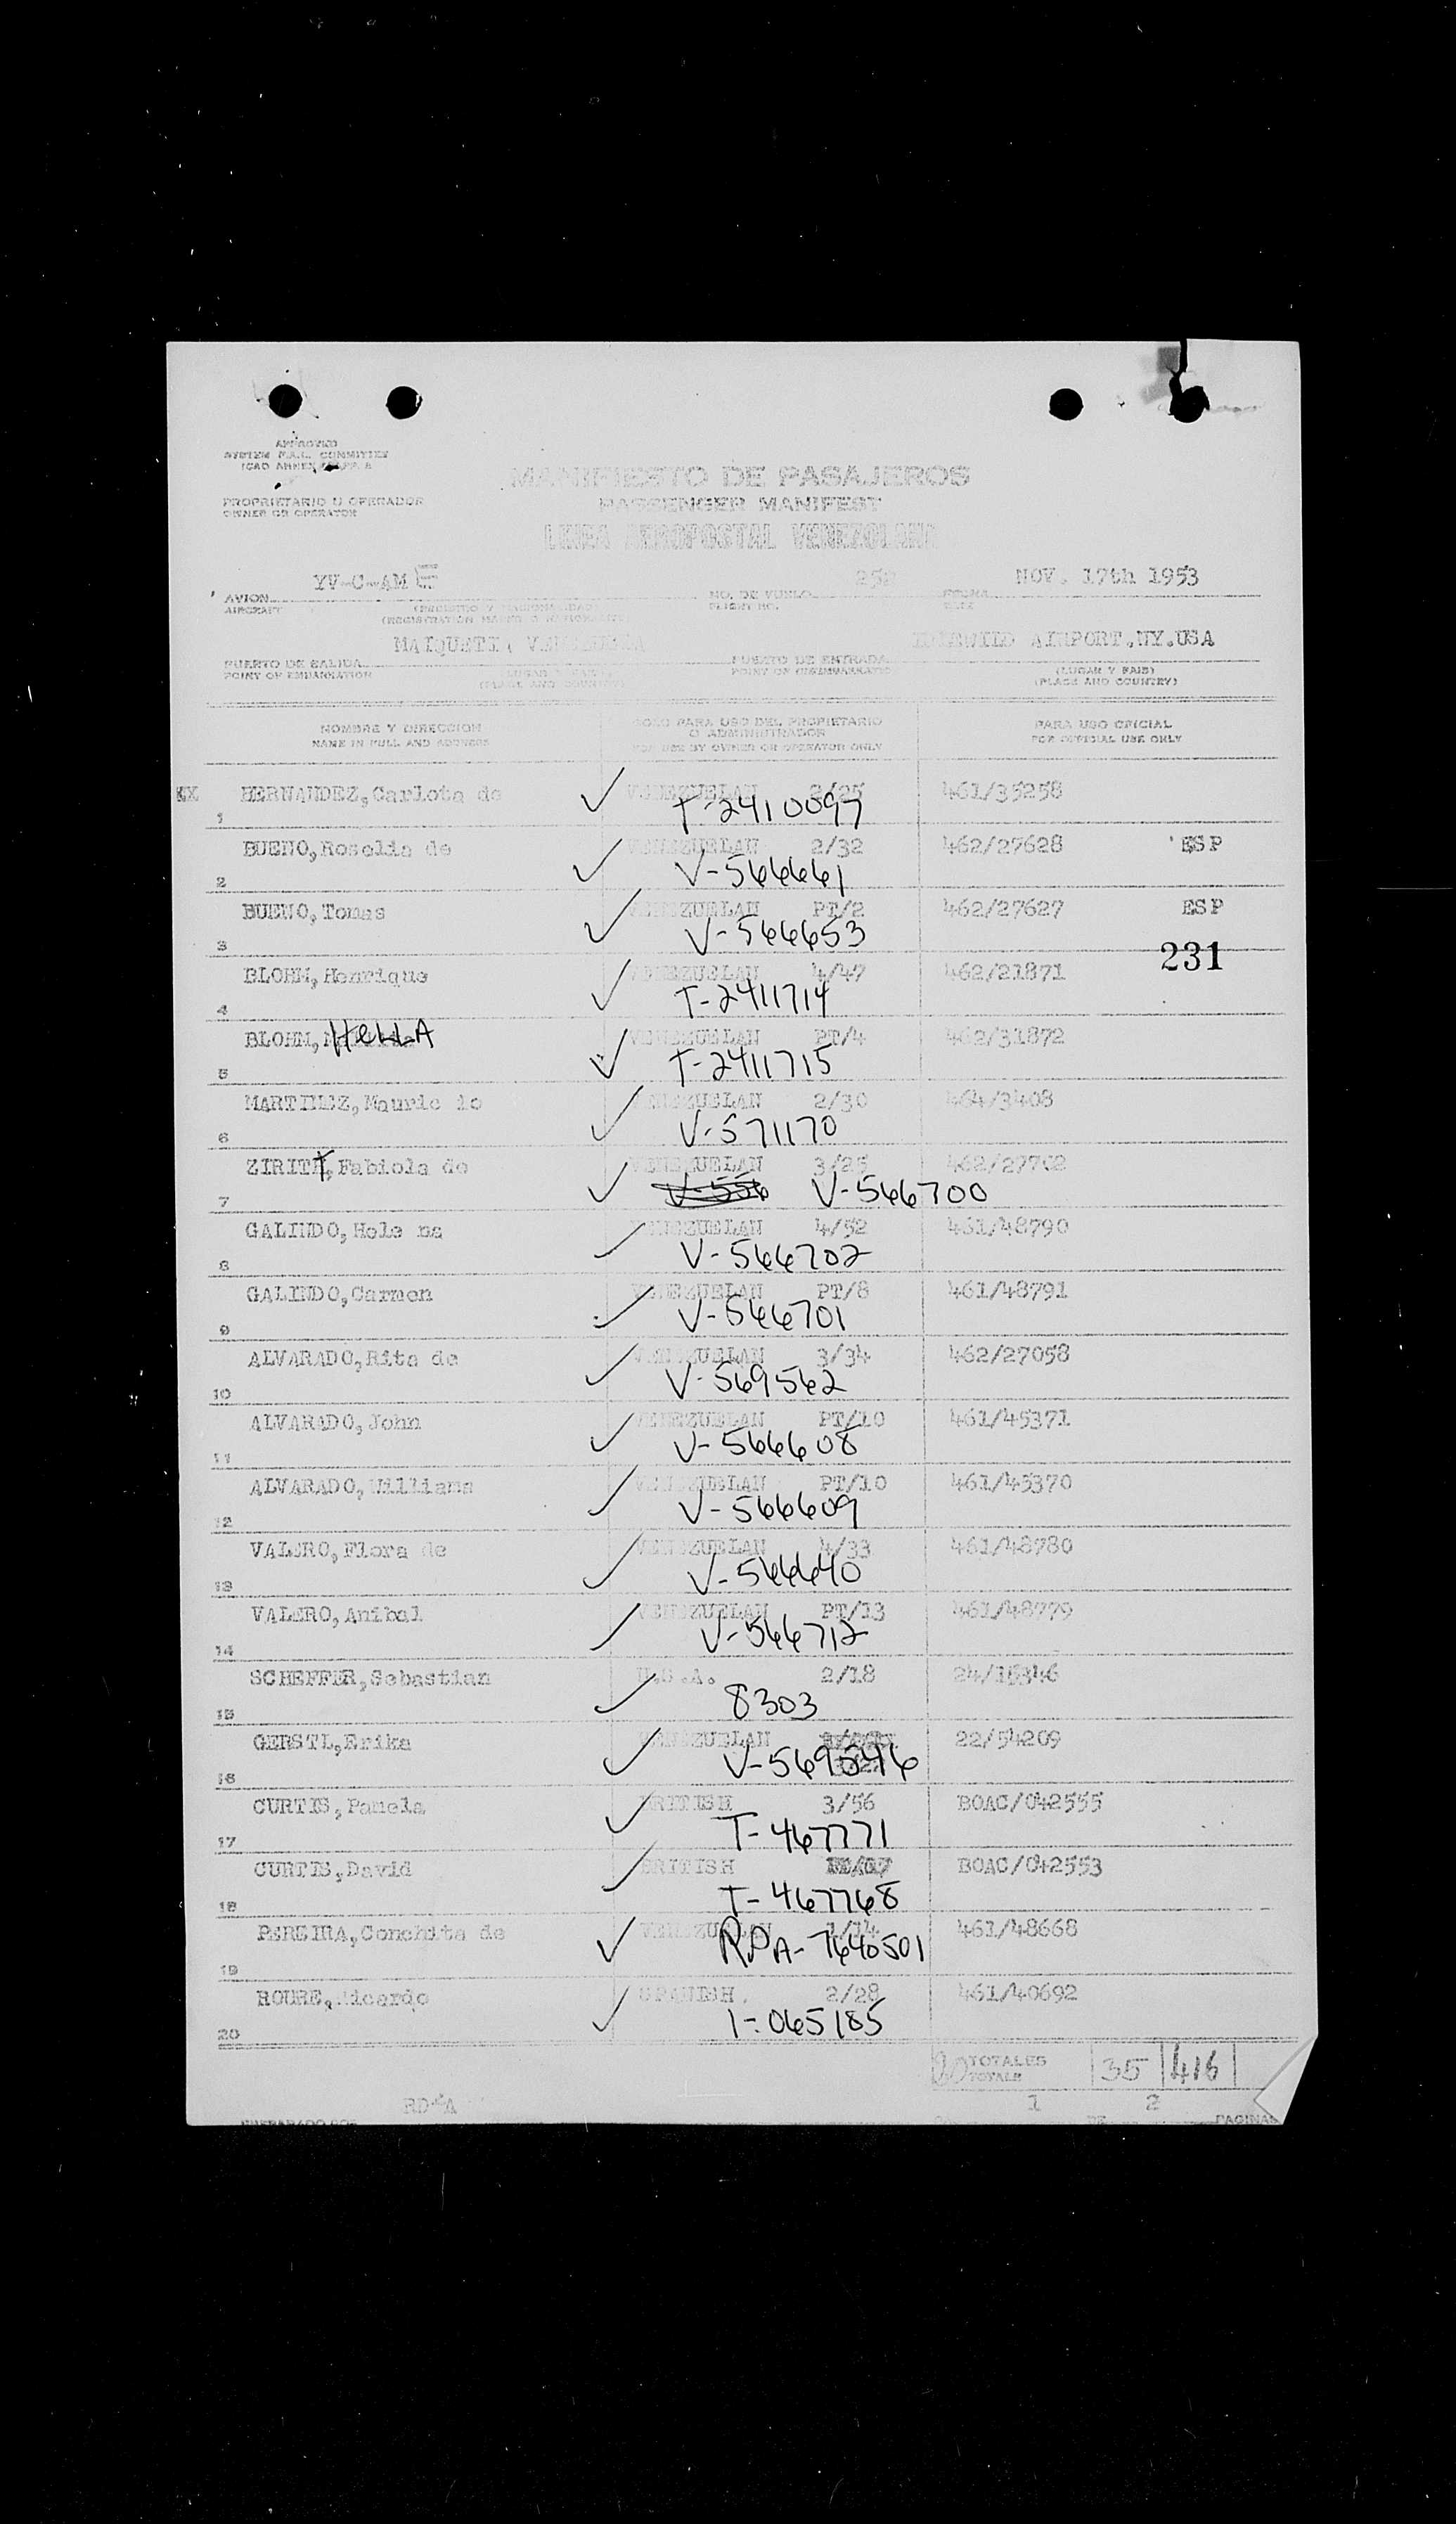 APPROVED
SYSTEM F.A.L. COMMITTEE
ICAO ANNEX
MANIFIESTO DE PASAJEROS
PROPRIETARIO U OPERADOR
PASSENGER MANIFEST
OWNER OR OPERATOR
LINEA AEROPOSTAL VENEZOLANA
YV-C-AME 252 NOV. 17th 1953
AVION NO. DE VUELO FECHA
AIRCRAFT (REGISTRO Y NACIONALIDAD) FLIGHT NO. DATE
(REGISTRATION MARKS & NATIONALITY)
MAIQUETIA VENEZUELA IDLEWILD AIRPORT.NY.USA
PUERTO DE SALIDA PUERTO DE ENTRADA (LUGAR Y PAIS)
POINT OF EMBARKATION (LUGAR Y PAIS) POINT OF DISEMBARKATION (PLACE AND COUNTRY)
(PLACE AND COUNTRY)
NOMBRE Y DIRECCION SOLO PARA USO DEL PROPIETARIO PARA USO OFICIAL
NAME IN FULL AND ADDRESS O ADMINISTRADOR FOR OFFICIAL USE ONLY
FOR USE BY OWNER OR OPERATOR ONLY
HERNANDEZ,Carlota de VENEZUELAN 2/25 461/35258
1 T-2410097
BUENO,Roselia de VENEZUELAN 2/32 462/27628 ESP
2 V-566661
BUENO,Tomas VENEZUELAN PT/2 462/27627 ESP
3 V-566653
231
BLOHM,Henrique VENEZUELAN 4/47 462/21871
4 T-2411714
BLOHM, HELLA VENEZUELAN PT/4 462/31872
5 T-2411715
MARTINEZ,Mauric io VENEZUELAN 2/30 464/3408
6 V-571170
ZIRITT,Fabiola de VENEZUELAN 3/25 462/27702
7 V-556 V-566700
GALINDO,Hele na VENEZUELAN 4/52 461/48790
8 V-566702
GALINDO,Carmen VENEZUELAN PT/8 461/48791
9 V-566701
ALVARADO,Rita de VENEZUELAN 3/34 462/27058
10 V-569562
ALVARADO,John VENEZUELAN PT/10 461/45371
11 V-566608
ALVARADO,Williams VENEZUELAN PT/10 461/45370
12 V-566609
VALERO,Flora de VENEZUELAN 4/33 461/48780
13 V-566640
VALERO,Anibal VENEZUELAN PT/13 461/48779
14 V-566712
SCHEFFER,Sebastian U.S.A. 2/18 24/15346
15 8303
GERSTL,Erika VENEZUELAN 22/54209
16 V-569546
CURTIS,Pamela BRITISH 3/56 BOAC/042555
17 T-467771
CURTIS,David BRITISH BOAC/042553
18 T-467768
PEREIRA,Conchita de VENEZUELAN 1/14 461/48668
19 RPA-7640501
ROURE,Ricardo SPANISH. 2/28 461/40692
20 I-065185
20 TOTALES 35 416
TOTALS
1 2
DE PAGINAS